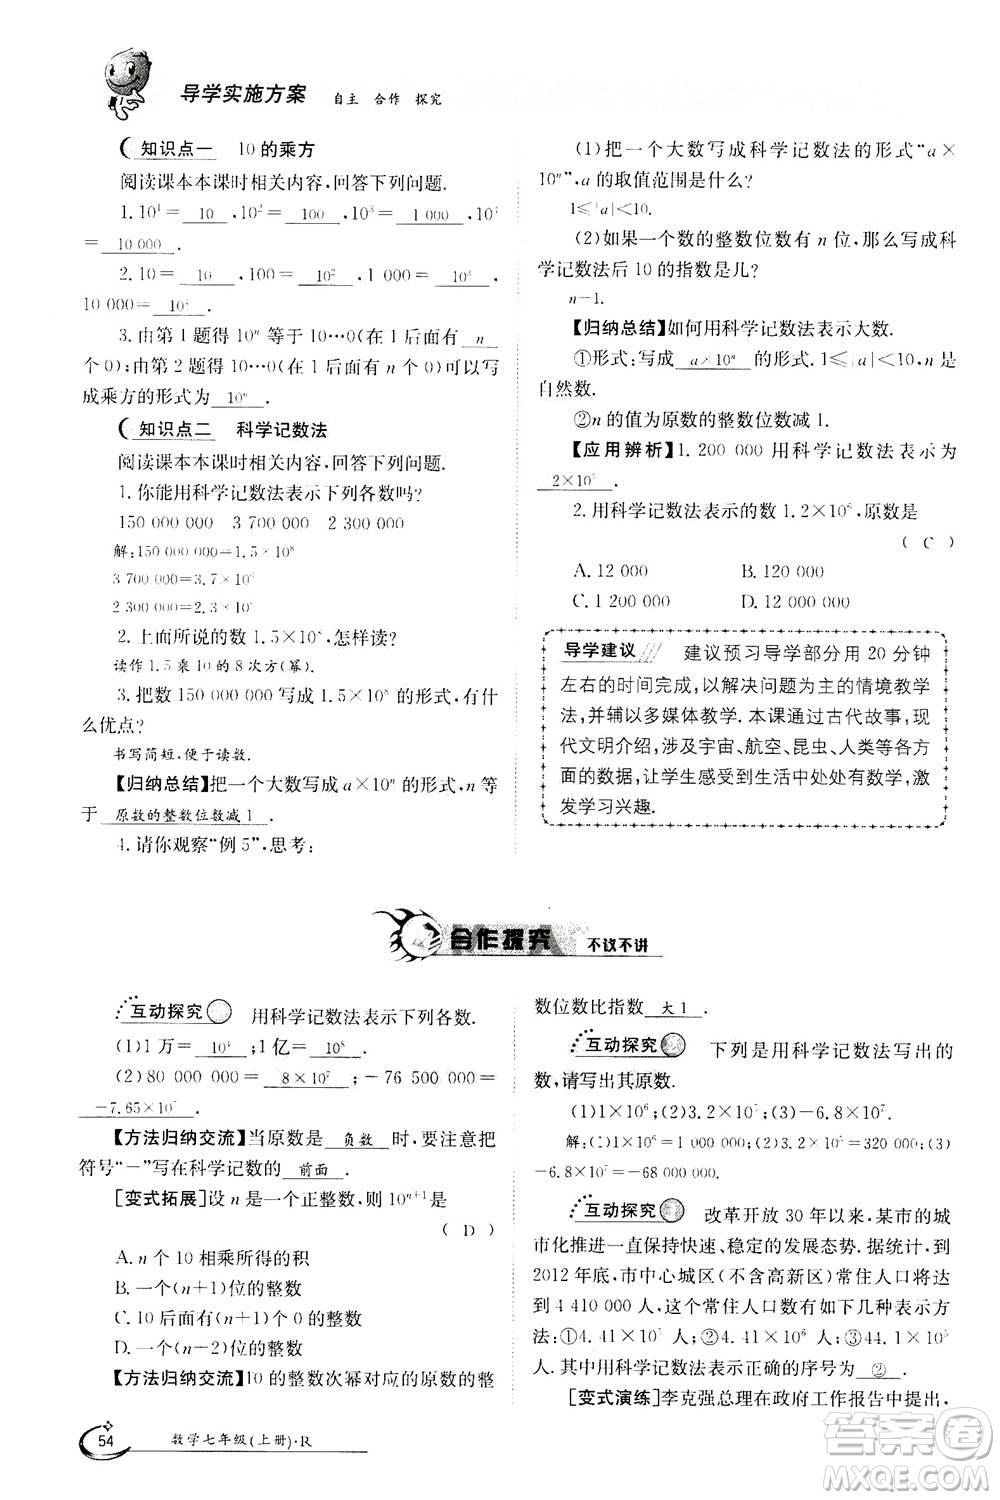 导学实施方案 自主 合作 探究
知识点一 10的乘方
阅读课本本课时相关内容,回答下列问题.
1. 10¹= 10 ,10²= 100 ,10³= 1 000 ,10
= 10 000 .
2. 10= 10 ,100= 10² ,1 000= 10³ ,
10 000= 10 .
3. 由第1题得10ⁿ等于10…0(在1后面有 n
个0);由第2题得10…0(在1后面有n个0)可写
成乘方的形式为 10ⁿ .
知识点二 科学记数法
阅读课本本课时相关内容,回答下列问题.
1. 你能用科学记数法表示下列各数吗?
150 000 000 3 700 000 2 300 000
解:150 000 000=1.5×10⁸
3 700 000=3.7×10
2 300 000=2.3×10
2. 上面所说的数1.5×10⁸,怎样读?
读作1.5乘10的8次方(幂).
3. 把数150 000 000写成1.5×10⁸的形式,有什
么优点?
书写简短,便于读数.
【归纳总结】把一个大数写成a×10ⁿ的形式,n等
于 原数的整数位数减1 .
4. 请你观察“例5”,思考:
(1)把一个大数写成科学记数法的形式“a×
10ⁿ”,a的取值范围是什么?
1≤|a|<10.
(2)如果一个数的整数位数有n位,那么写成科
学记数法后10的指数是几?
n-1.
【归纳总结】如何用科学记数法表示大数.
①形式:写成 a×10ⁿ 的形式.1≤|a|<10,n是
自然数.
②n的值为原数的整数位数减1.
【应用辨析】1. 200 000用科学记数法表示为
2×10⁵ .
2. 用科学记数法表示的数1.2×10⁶,原数是
( C )
A. 12 000 B. 120 000
C. 1 200 000 D. 12 000 000
导学建议 建议预习导学部分用20分钟
左右的时间完成,以解决问题为主的情境教学
法,并辅以多媒体教学.本课通过古代故事,现
代文明介绍,涉及宇宙、航空、昆虫、人类等各方
面的数据,让学生感受到生活中处处有数学,激
发学习兴趣.
合作探究 不议不讲
互动探究 用科学记数法表示下列各数.
(1)1万= 10⁴ ,1亿= 10⁸ .
(2)80 000 000= 8×10⁷ ,-76 500 000=
-7.65×10⁷ .
【方法归纳交流】当原数是 负数 时,要注意把
符号“-”写在科学记数的 前面 .
[变式拓展]设n是一个正整数,则10ⁿ⁺¹是
( D )
A. n个10相乘所得的积
B. 一个(n+1)位的整数
C. 10后面有(n+1)个0的整数
D. 一个(n+2)位的整数
【方法归纳交流】10的整数次幂对应的原数的整
数位数比指数 大1 .
互动探究 下列是用科学记数法写出的
数,请写出其原数.
(1)1×10⁶;(2)3.2×10⁵;(3)-6.8×10⁷.
解:(1)1×10⁶=1 000 000;(2)3.2×10⁵=320 000;(3)
-6.8×10⁷=-68 000 000.
互动探究 改革开放30年以来,某市的城
市化推进一直保持快速、稳定的发展态势.据统计,到
2012年底,市中心城区(不含高新区)常住人口将达
到4 410 000人,这个常住人口数有如下几种表示方
法:①4.41×10⁵人;②4.41×10⁶人;③44.1×10⁵
人.其中用科学记数法表示正确的序号为 ② .
[变式演练]李克强总理在政府工作报告中提出,
54 数学七年级(上册)·R
答案圈
MXQE.COM